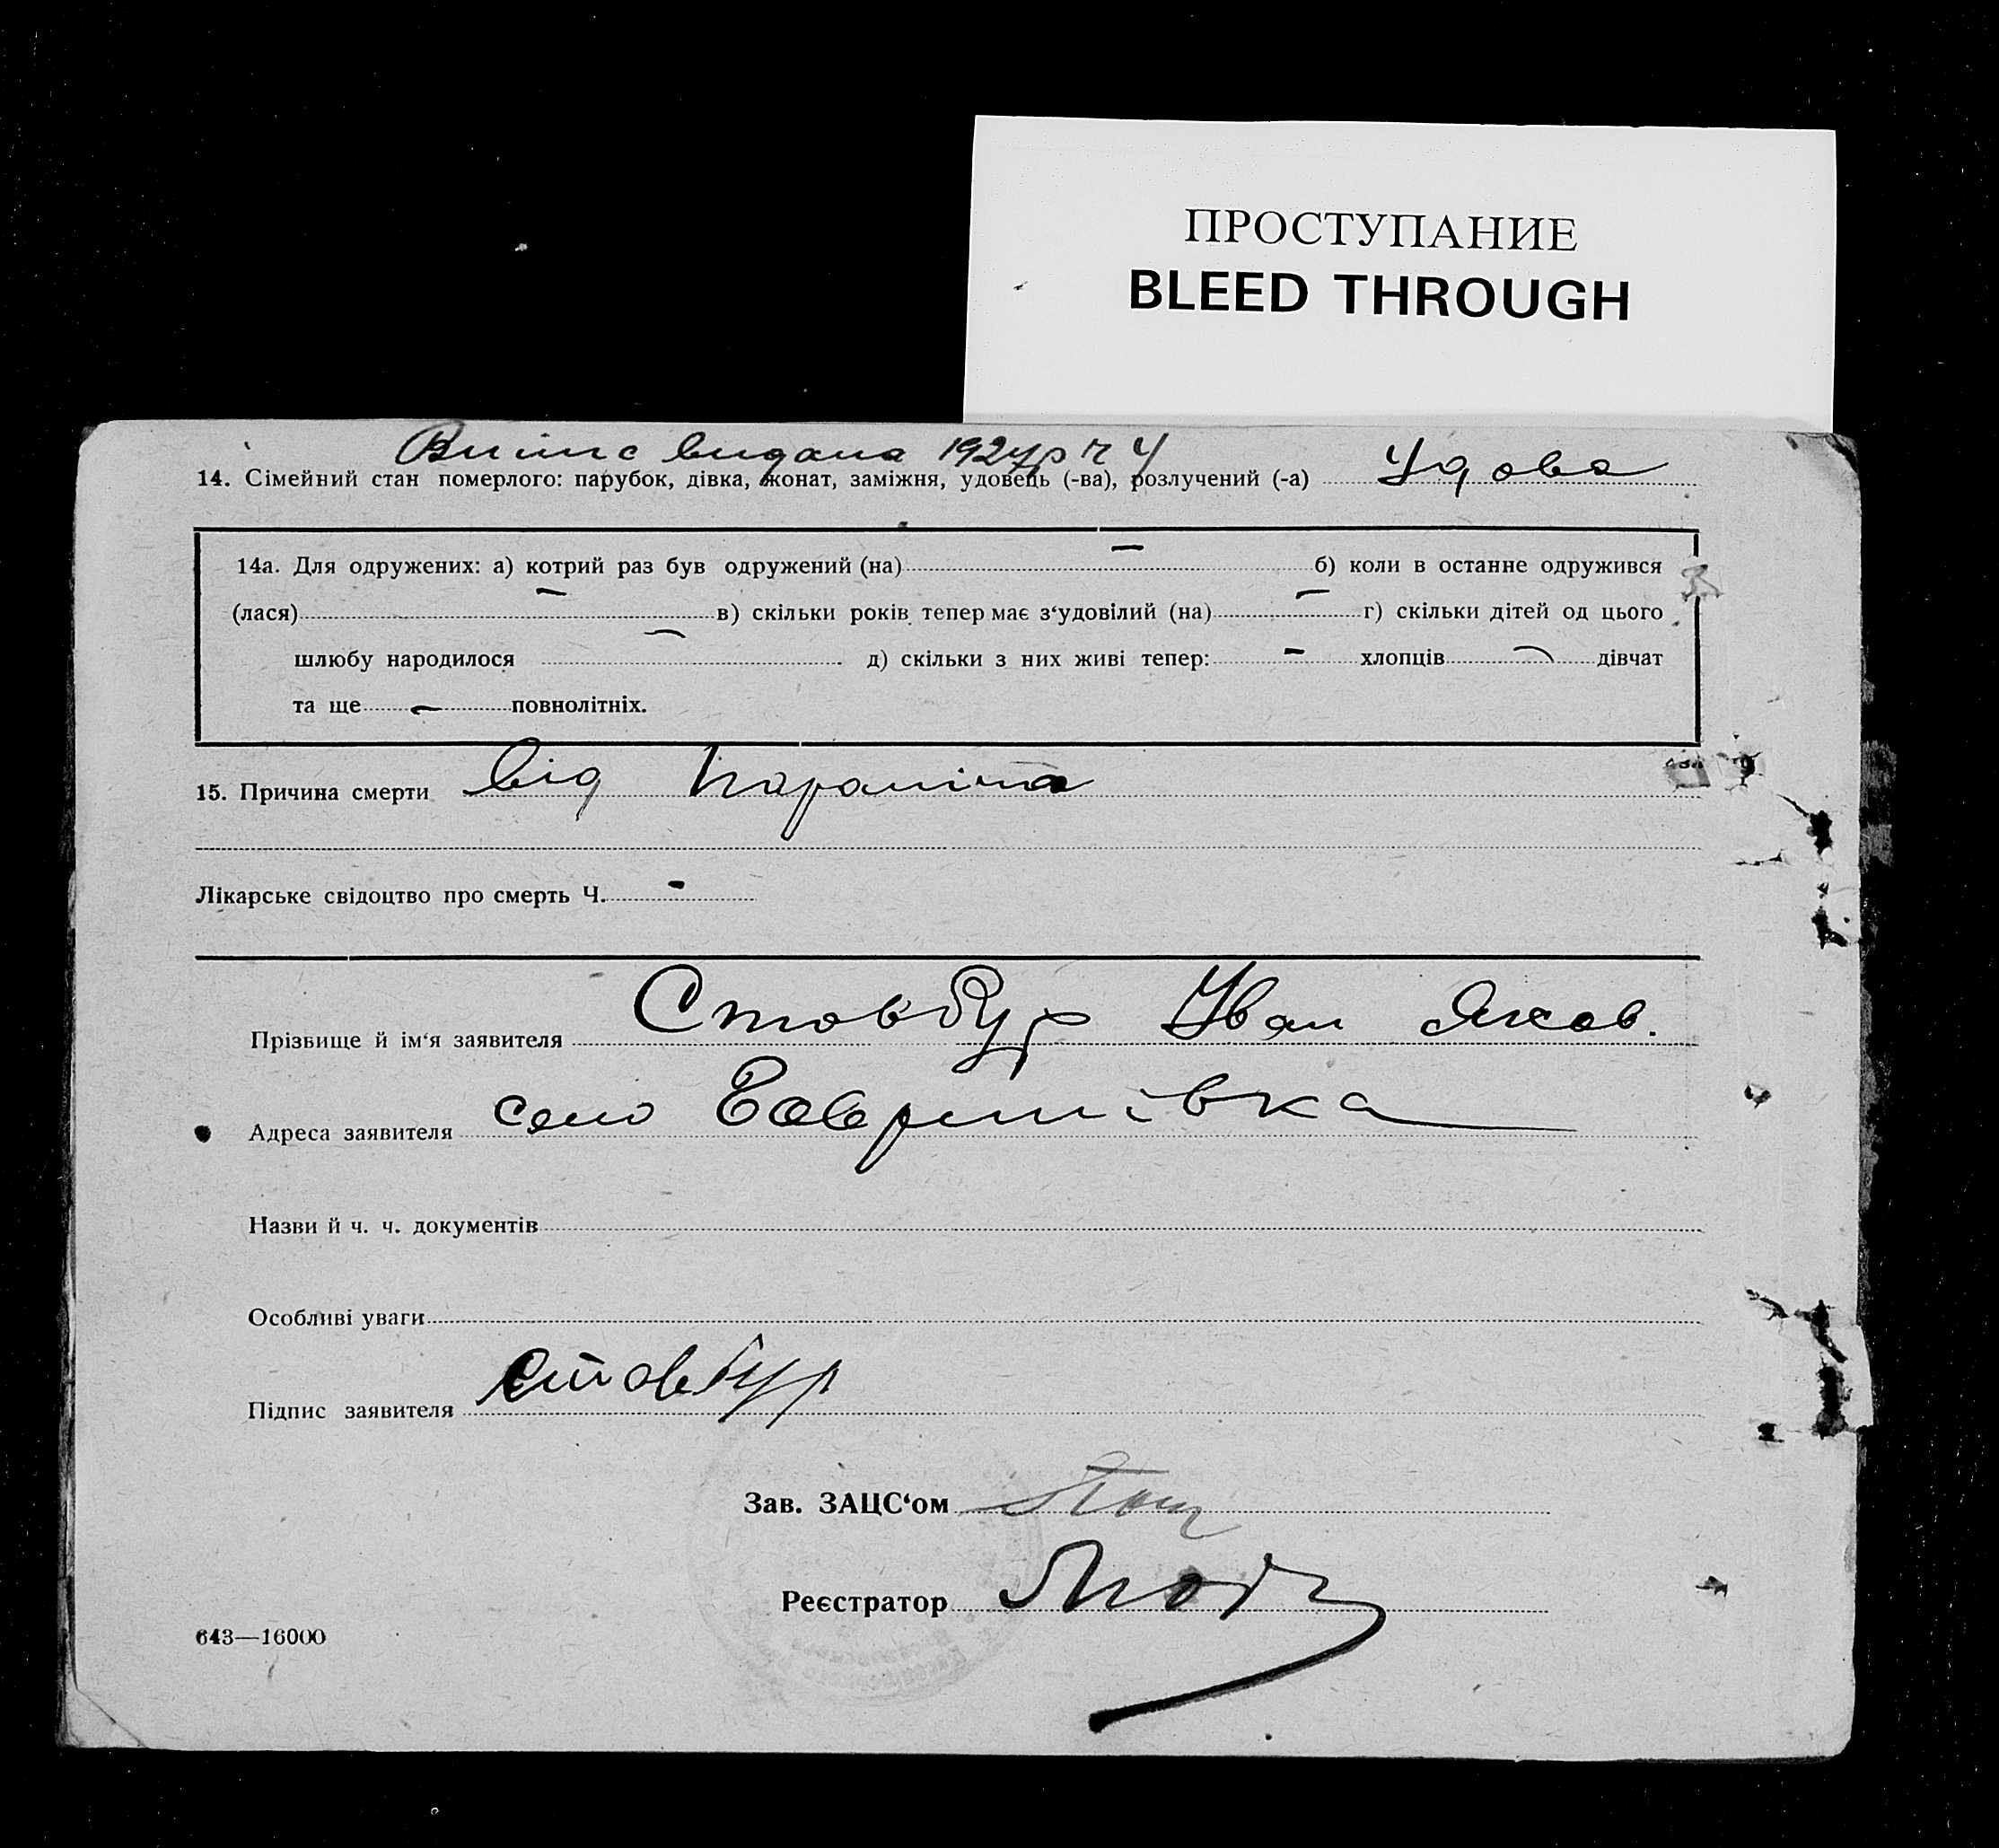 ПРОСТУПАНИЕ
BLEED THROUGH
Випис видана 1927р ч 4
14. Сімейний стан померлого: парубок, дівка, жонат, заміжня, удовець (-ва), розлучений (-а) Удова
14а. Для одружених: а) котрий раз був одружений (на) — б) коли в останне одружився
(лася) — в) скільки років тепер має з‘удовілий (на) — г) скільки дітей од цього
шлюбу народилося — д) скільки з них живі тепер: — хлопців — дівчат
та ще — повнолітніх.
15. Причина смерти від
Лікарське свідоцтво про смерть Ч. -
Прізвище й ім‘я заявителя Стовбур Іван Яков.
Адреса заявителя село Гавришівка
Назви й ч. ч. документів
Особливі уваги
Підпис заявителя Стовбур
Зав. ЗАЦС‘ом
Реєстратор
643—16000